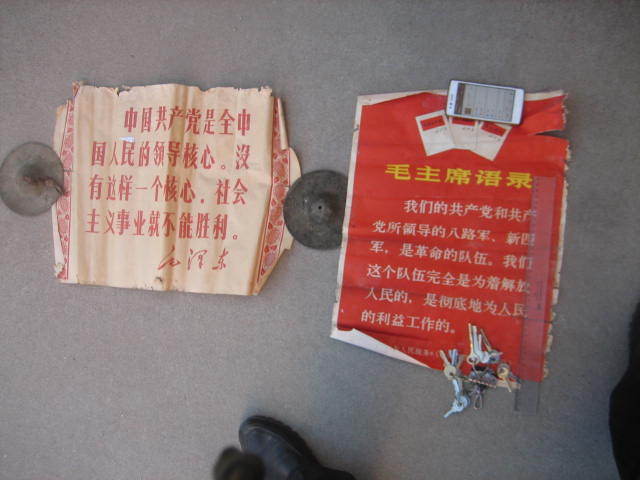 中国共产党是全中
国人民的领导核心。没
有这样一个核心，社会
主义事业就不能胜利。
毛泽东
毛主席语录
我们的共产党和共产
党所领导的八路军、新四
军，是革命的队伍。我们
这个队伍完全是为着解放
人民的，是彻底地为人民
的利益工作的。
人民服务